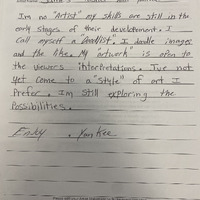 Im no "Artist" my skills are still in the
early stages of their developement. I
call myself a "Doodlist". I doodle images
and the like. My artwork" is open to
the viewers interpretations. I've not
yet come to a "style" of art I
Prefer. Im still exploring the
Possibilities.
Enjoy . Yankee